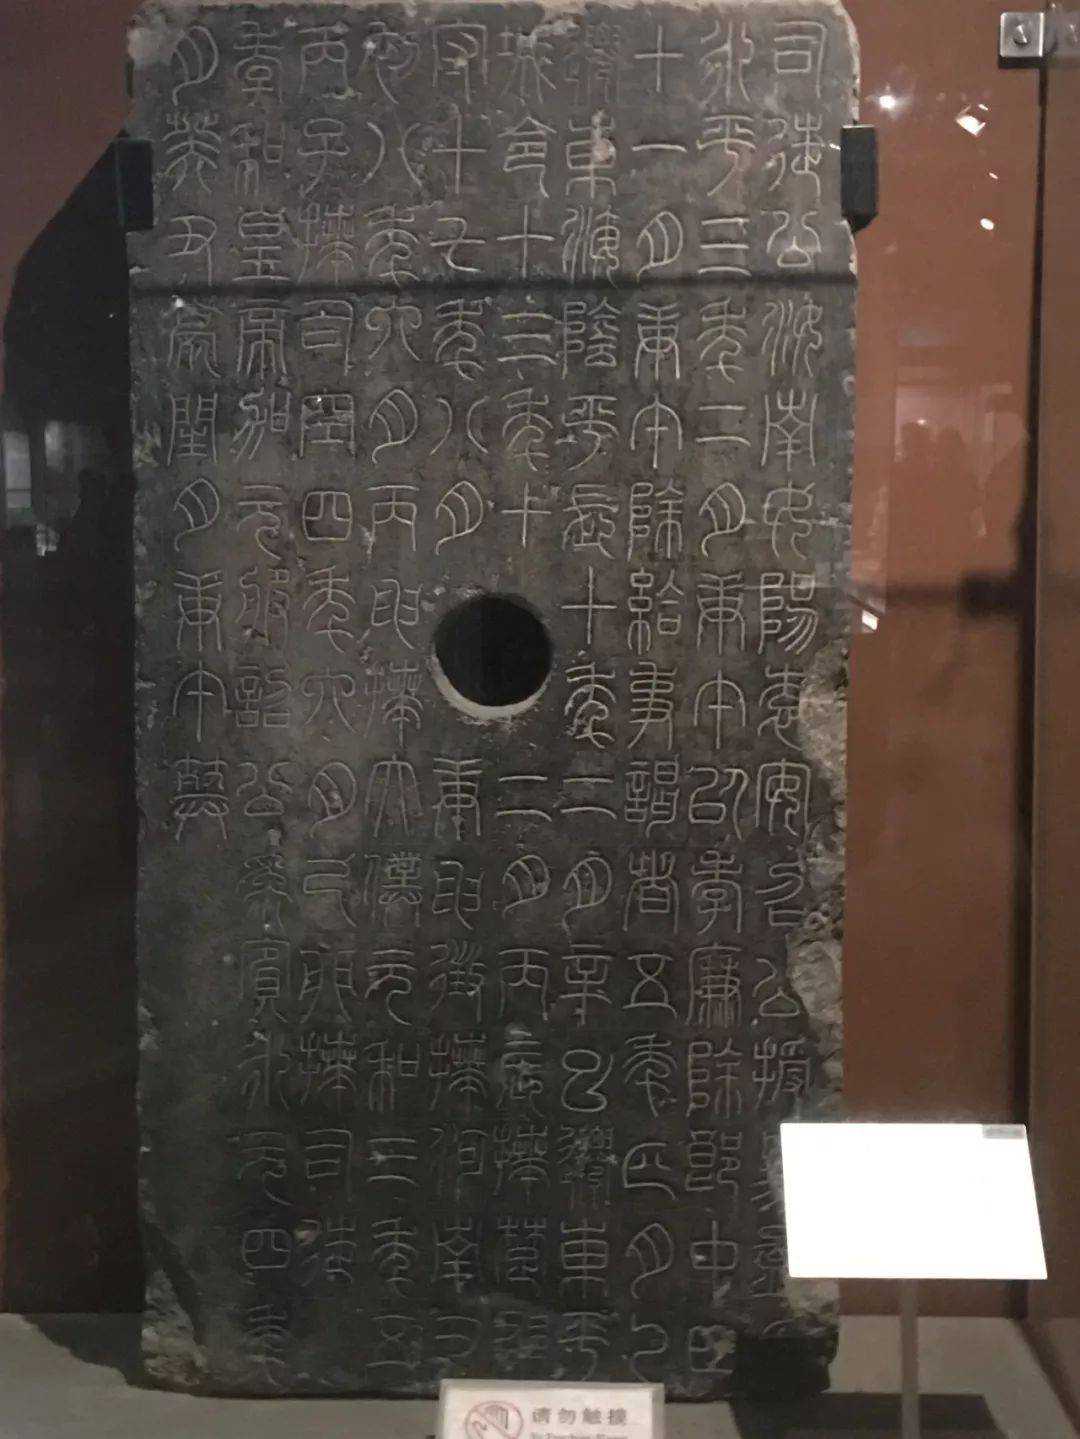 司徒公汝南女陽袁安召公授
永平三年二月庚午以孝廉除郎中四
十一月庚午除給事謁者五年正月乙
遷東海陰平長十年二月辛巳遷東平
城令十三年十二月丙辰拜楚郡
守十七年八月庚申徵拜河南尹
初八年六月丙申拜太僕元和三年五
丙子拜司空四年六月己卯拜司徒
孝和皇帝加元服詔公為賓永元四年
月癸丑薨閏月庚午葬
请勿触摸